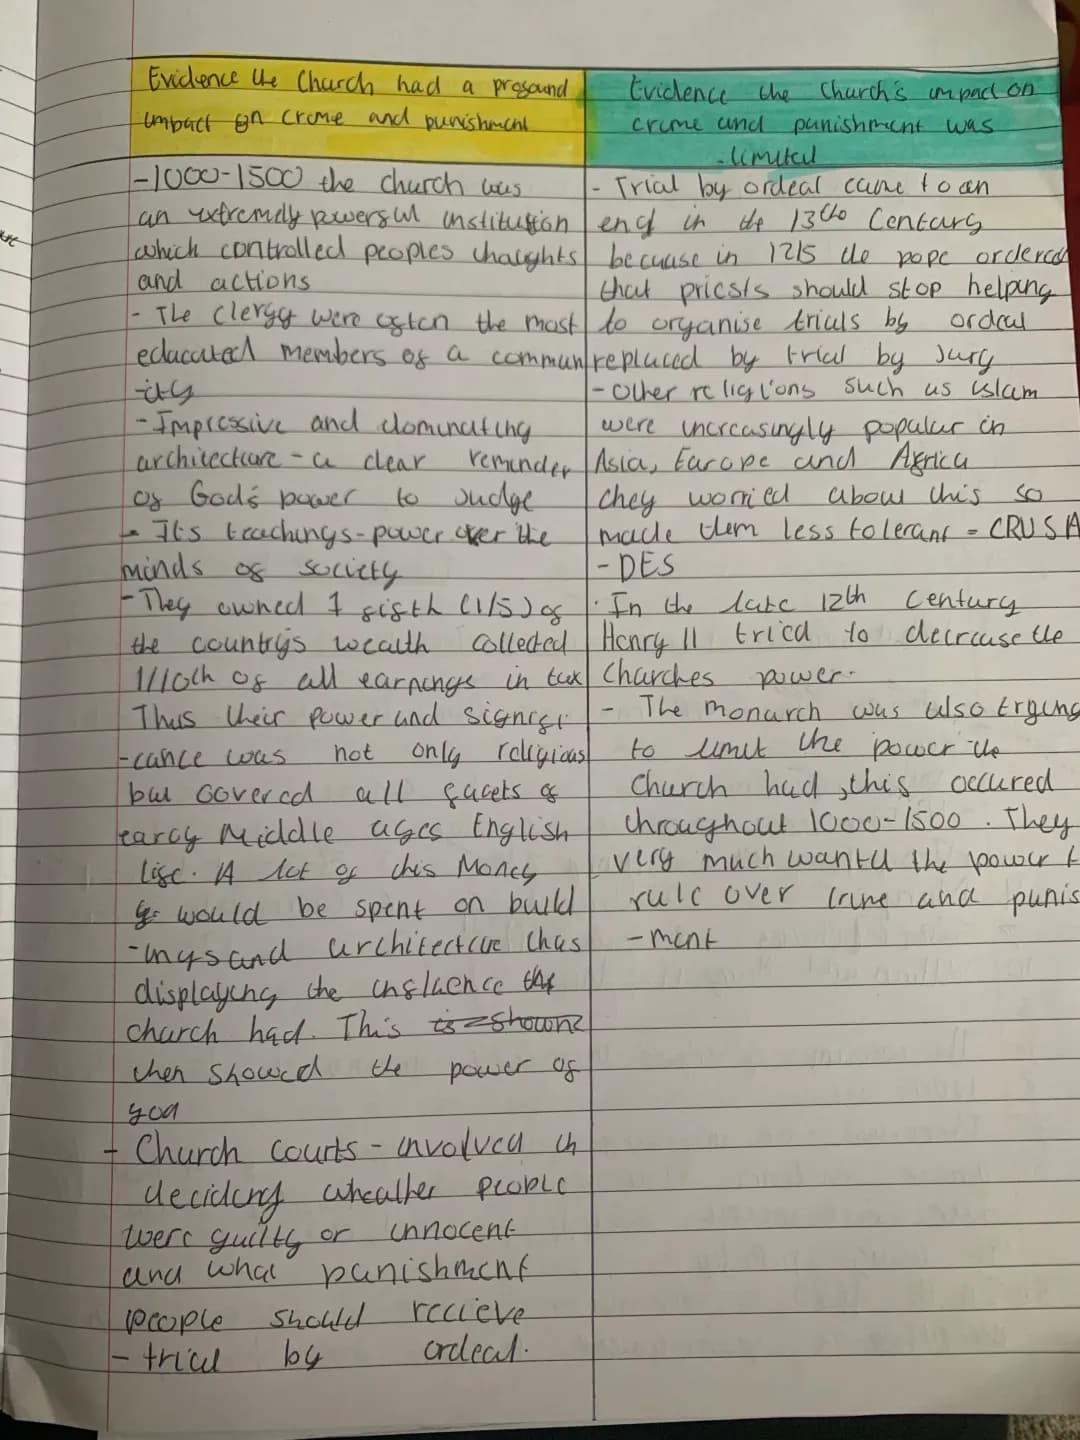 Evidence the Church had a profound
impact on crime and punishment
-1000-1500 the church was
an extremely powerful institution
which controlled peoples thaughts
and actions
- The clergy were often the most
educated members of a commun
-ity
- Impressive and dominating
architecture - a clear reminder
of God's power to Judge
- It's teachings - power over the
minds of society
- They owned 1 fifth (1/5) of
the country's wealth collected
1/10th of all earnings in tax
Thus their power and signifi
-cance was not only religious
but covered all facets of
early Middle ages English
life. A lot of this Money
would be spent on build
-ings and architecture thus
displaying the influence the
church had. This is shown
then showed the power of
god
- Church courts - involved in
deciding wheather people
were guilty or innocent
and what punishment
people should recieve
- trial by ordeal.
Evidence the Church's impact on
crime and punishment was
limited
- Trial by ordeal came to an
end in the 13th Century
because in 1215 the pope ordered
that priests should stop helping
to organise trials by ordeal
replaced by trial by Jury
- Other religions such as islam
were increasingly popular in
Asia, Europe and Africa
they worried about this so
made them less tolerant = CRUSA
- DES
· In the late 12th Century
Henry II tried to decrease the
Churches power.
- The monarch was also trying
to limit the power the
Church had, this occured
throughout 1000-1500. They
very much wanted the power t
rule over crime and punis
-ment